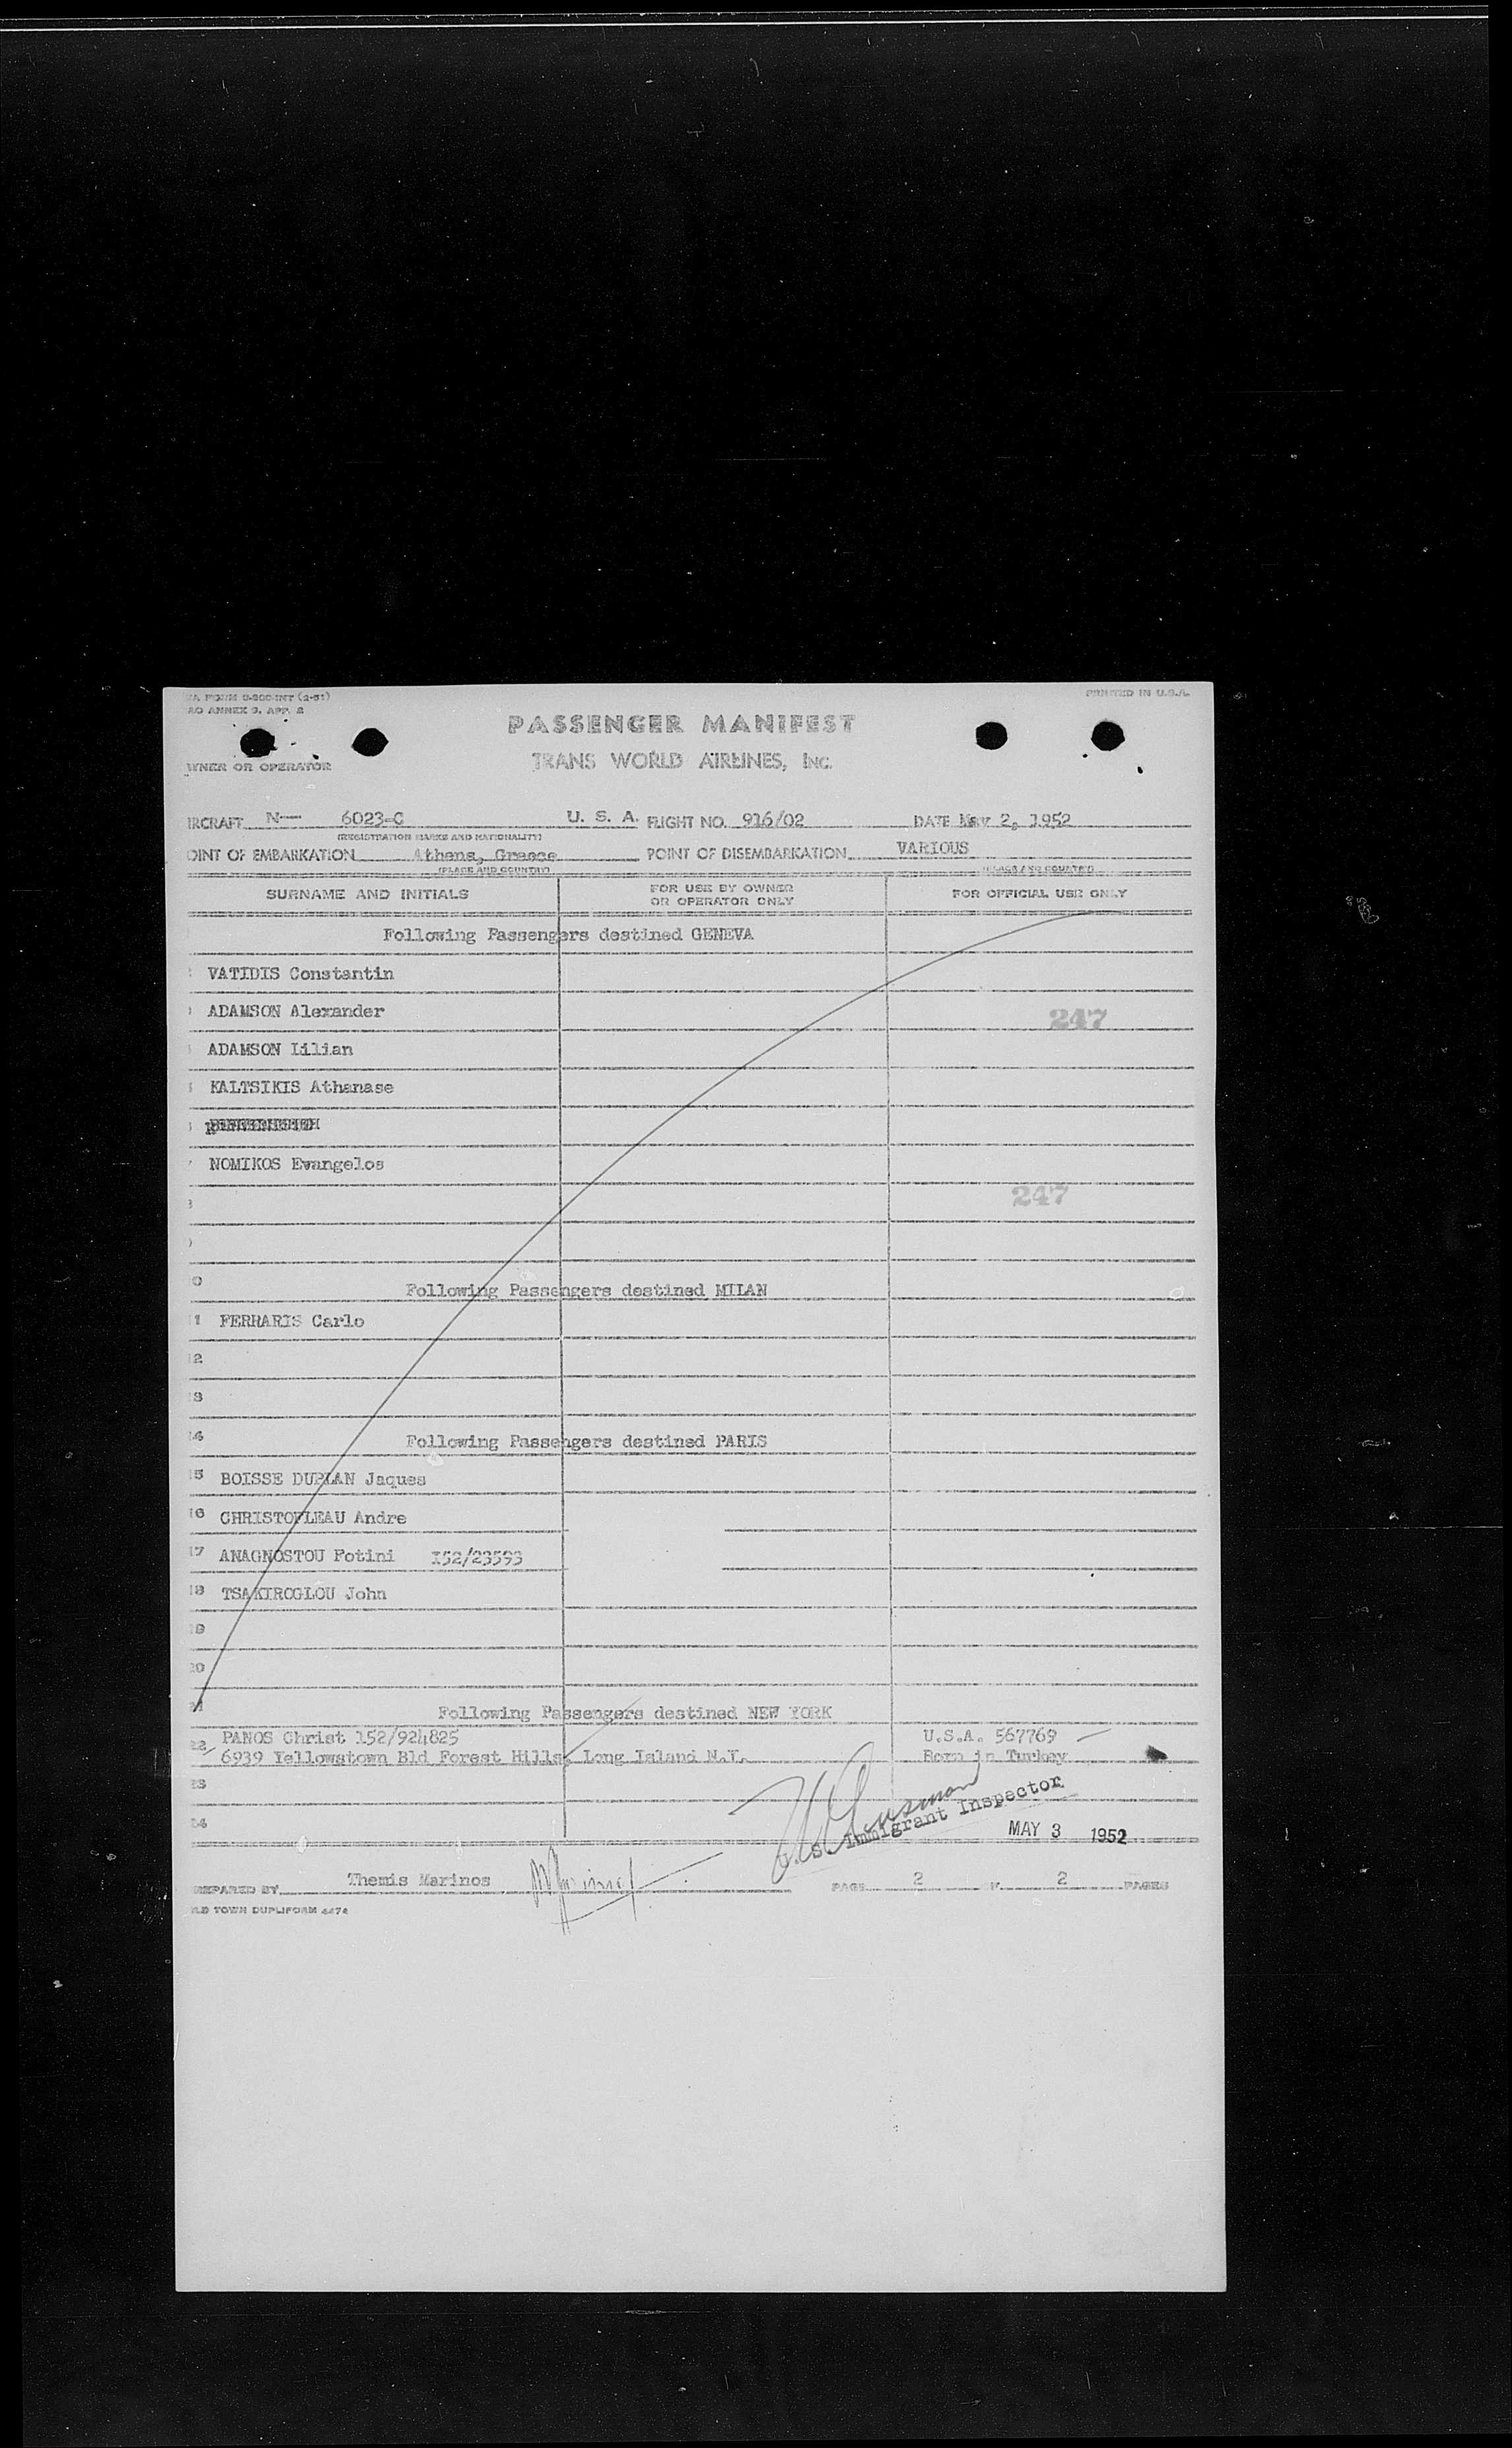 WA FORM O-200-INT (2-51)
AO ANNEX 9, APP. 2
PRINTED IN U.S.A.
PASSENGER MANIFEST
TRANS WORLD AIRLINES, INC.
WNER OR OPERATOR
IRCRAFT N— 6023-C U. S. A. FLIGHT NO. 916/02 DATE May 2, 1952
(REGISTRATION MARKS AND NATIONALITY)
OINT OF EMBARKATION Athens, Greece POINT OF DISEMBARKATION VARIOUS
(PLACE AND COUNTRY) (PLACE AND COUNTRY)
SURNAME AND INITIALS FOR USE BY OWNER OR OPERATOR ONLY FOR OFFICIAL USE ONLY
Following Passengers destined GENEVA
VATIDIS Constantin
ADAMSON Alexander 247
ADAMSON Lilian
KALTSIKIS Athanase
NOMIKOS Evangelos
247
10 Following Passengers destined MILAN
11 FERRARIS Carlo
12
13
14 Following Passengers destined PARIS
15 BOISSE DURLAN Jaques
16 CHRISTOFLEAU Andre
17 ANAGNOSTOU Fotini 152/23593
18 TSAKIROGLOU John
19
20
21 Following Passengers destined NEW YORK
PANOS Christ 152/924825 U.S.A. 567769
22 6939 Yellowstown Bld Forest Hills, Long Island N.Y. Born in Turkey
23
24
U.S. Immigrant Inspector
MAY 3 1952
REPARED BY Themis Marinos PAGE 2 2 PAGES
LD TOWN DUPLIFORM 4474